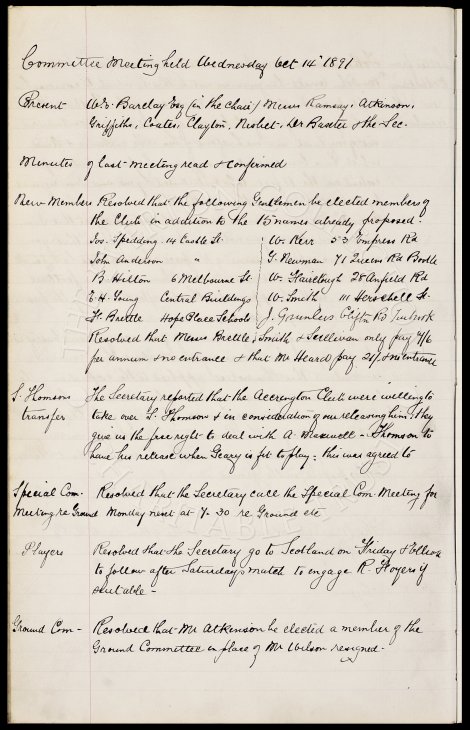 Committee Meeting held Wednesday Oct 14th 1891
Present W.E. Barclay Esq (in the chair) Messrs Ramsay, Atkinson,
Griffiths, Coates, Clayton, Nisbet, Dr Baxter & the Sec.
Minutes of last meeting read & confirmed
New Members Resolved that the following Gentlemen be elected members of
the Club in addition to the 15 names already proposed.
Jos. Spedding 14 Castle St W. Kerr 53 Empress Rd
John Anderson " G. Newman 71 Queens Rd Bootle
B. Hilton 6 Melbourne St W. Fairclough 28 Anfield Rd
E.H. Young Central Buildings W. Smith 111 Herschell St
H. Brettle Hope Place Schools J. Clifton Rd
Resolved that Messrs Brettle, Smith & Sullivan only pay
per annum & no entrance & that Mr Heard pay 21/- & no entrance
S. Thomson The Secretary reported that the Accrington Club were willing to
transfer take over S. Thomson & in consideration of our releasing him, they
give us the free right to deal with A. Maxwell - Thomson to
have his release when Geary is fit to play: this was agreed to
Special Com. Resolved that the Secretary call the Special Com. Meeting for
Meeting re Ground Monday next at 7-30 re Ground etc
Players Resolved that the Secretary go to Scotland on Friday &
to follow after Saturday's match to engage R. if
suitable -
Ground Com- Resolved that Mr Atkinson be elected a member of the
Ground Committee in place of Mr Wilson resigned -